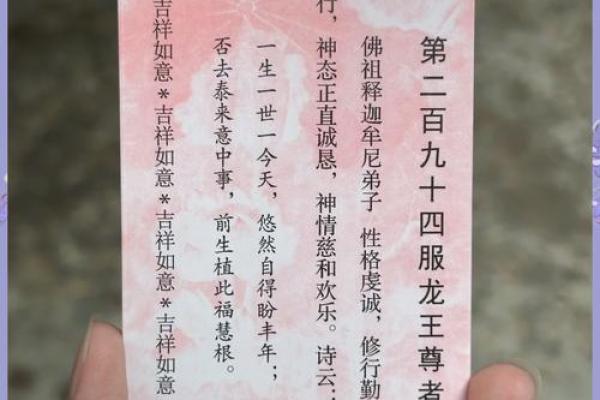 第二百九十四服龙王尊者
佛祖释迦牟尼弟子 性格虔诚，修行勤
行，神态正直诚恳，神情慈和欢乐。诗云：
一生一世一今天，悠然自得盼丰年；
否去泰来意中事，前生植此福慧根。
吉祥如意*吉祥如意*吉祥如意*吉祥如意